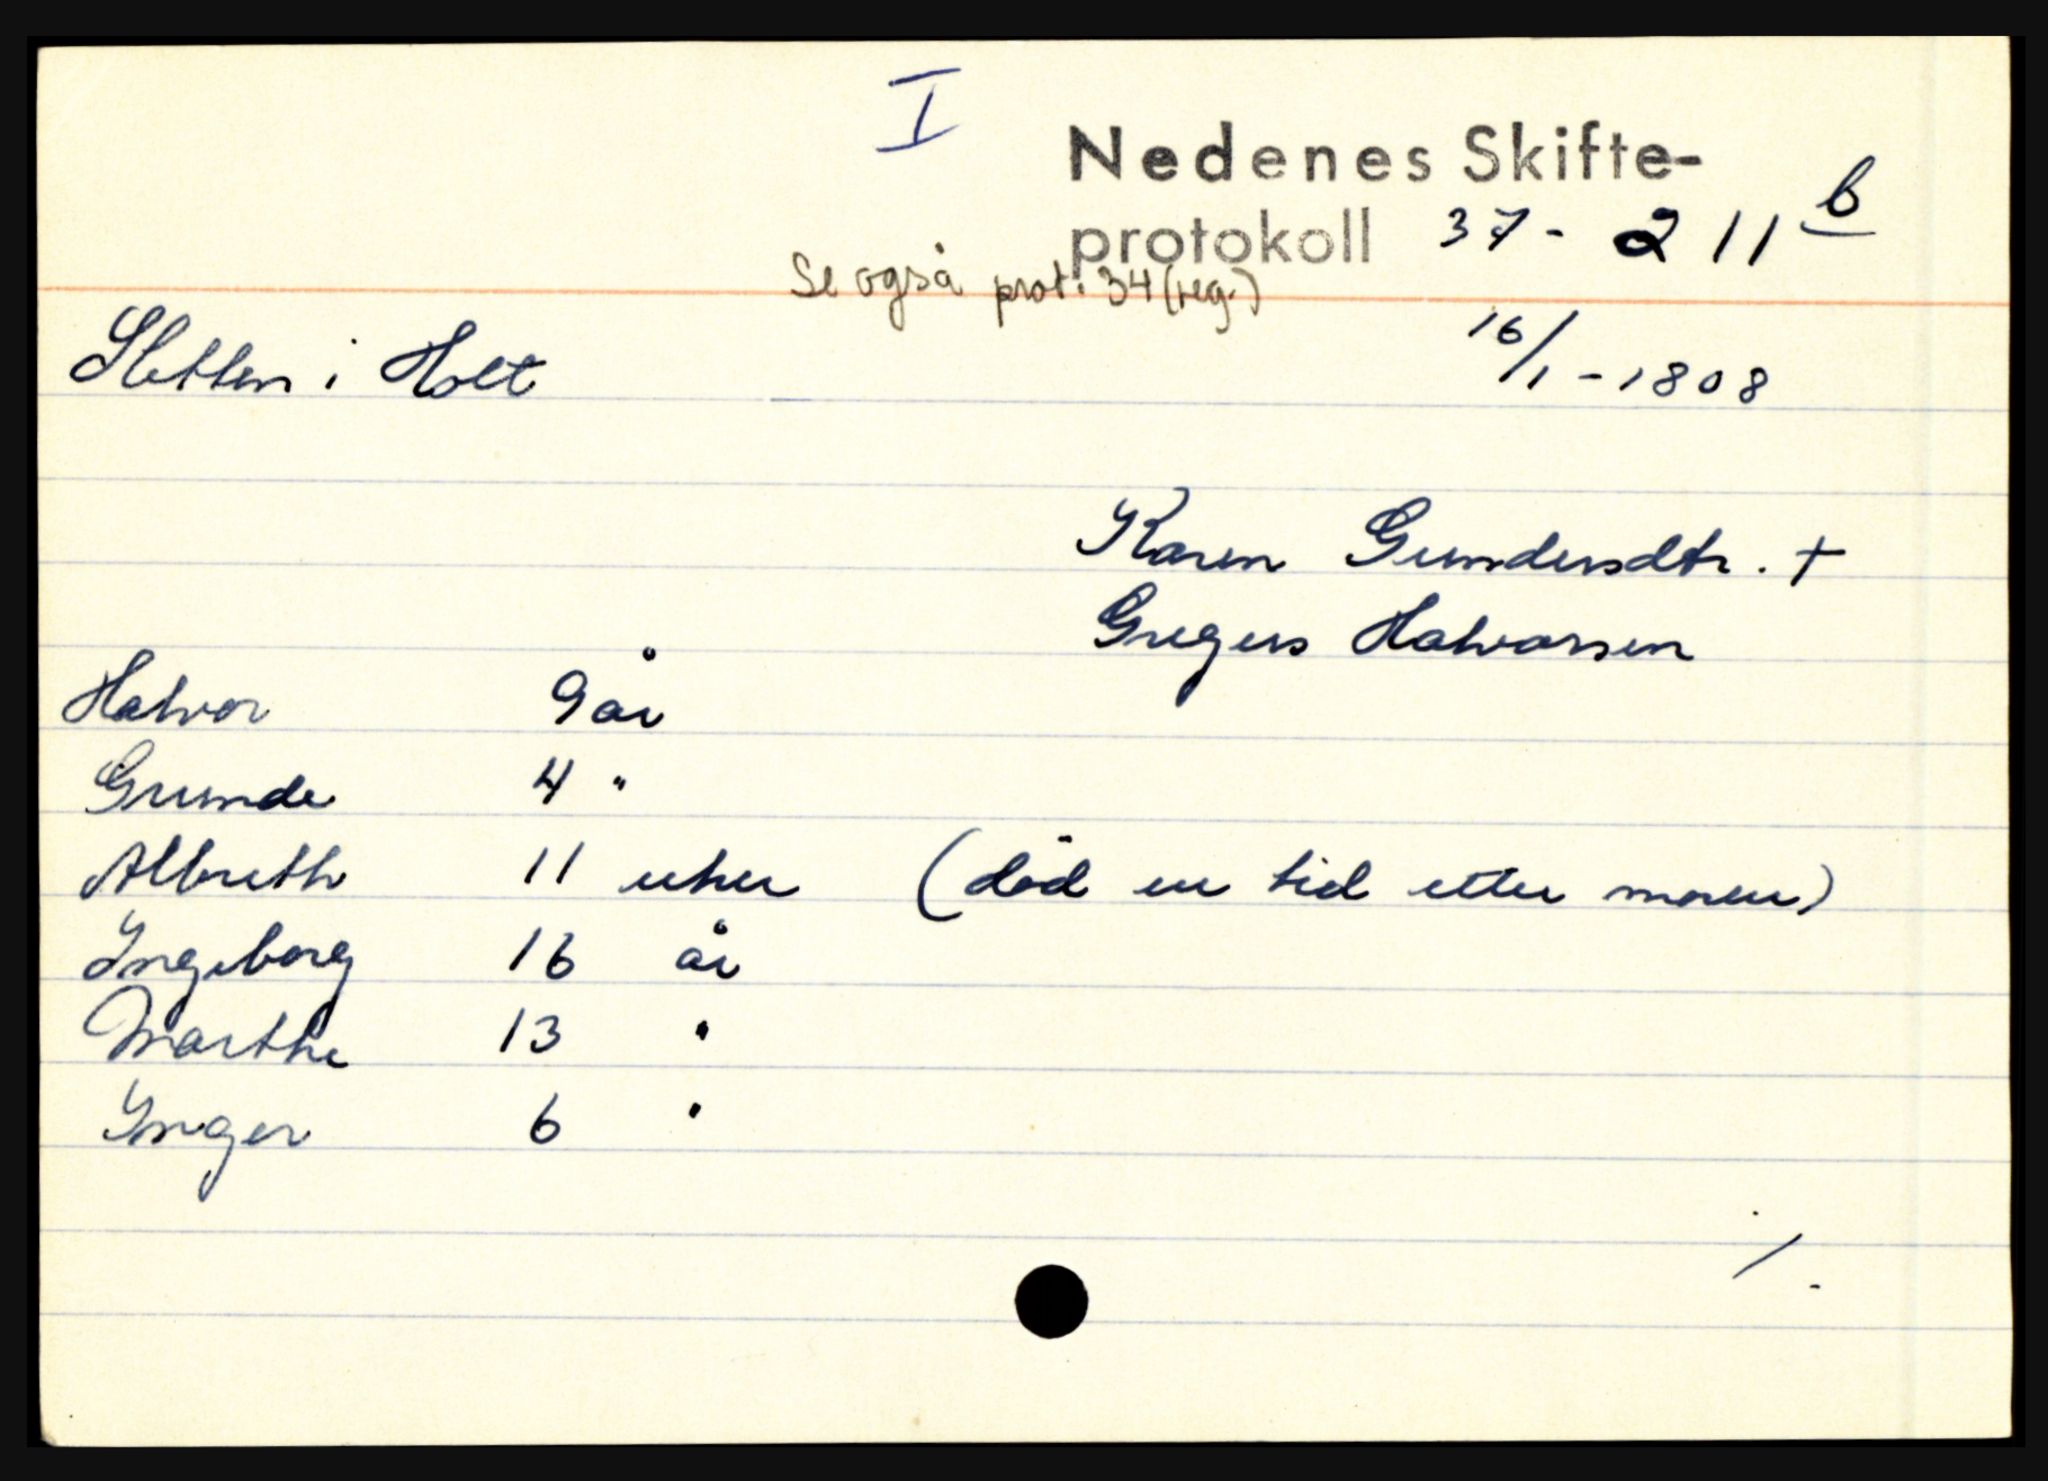 I
Nedenes Skifte-
protokoll 37 - 211 b
Se også prot. 34 (reg.)
Sletten i Holt 16/1 - 1808
Karen Gundersdtr. +
Gregers Halvorsen
Halvor 9 år
Gunde 4 "
Albreth 11 uker (död en tid etter moren)
Ingeborg 16 år
Marthe 13 "
Inger 6 "